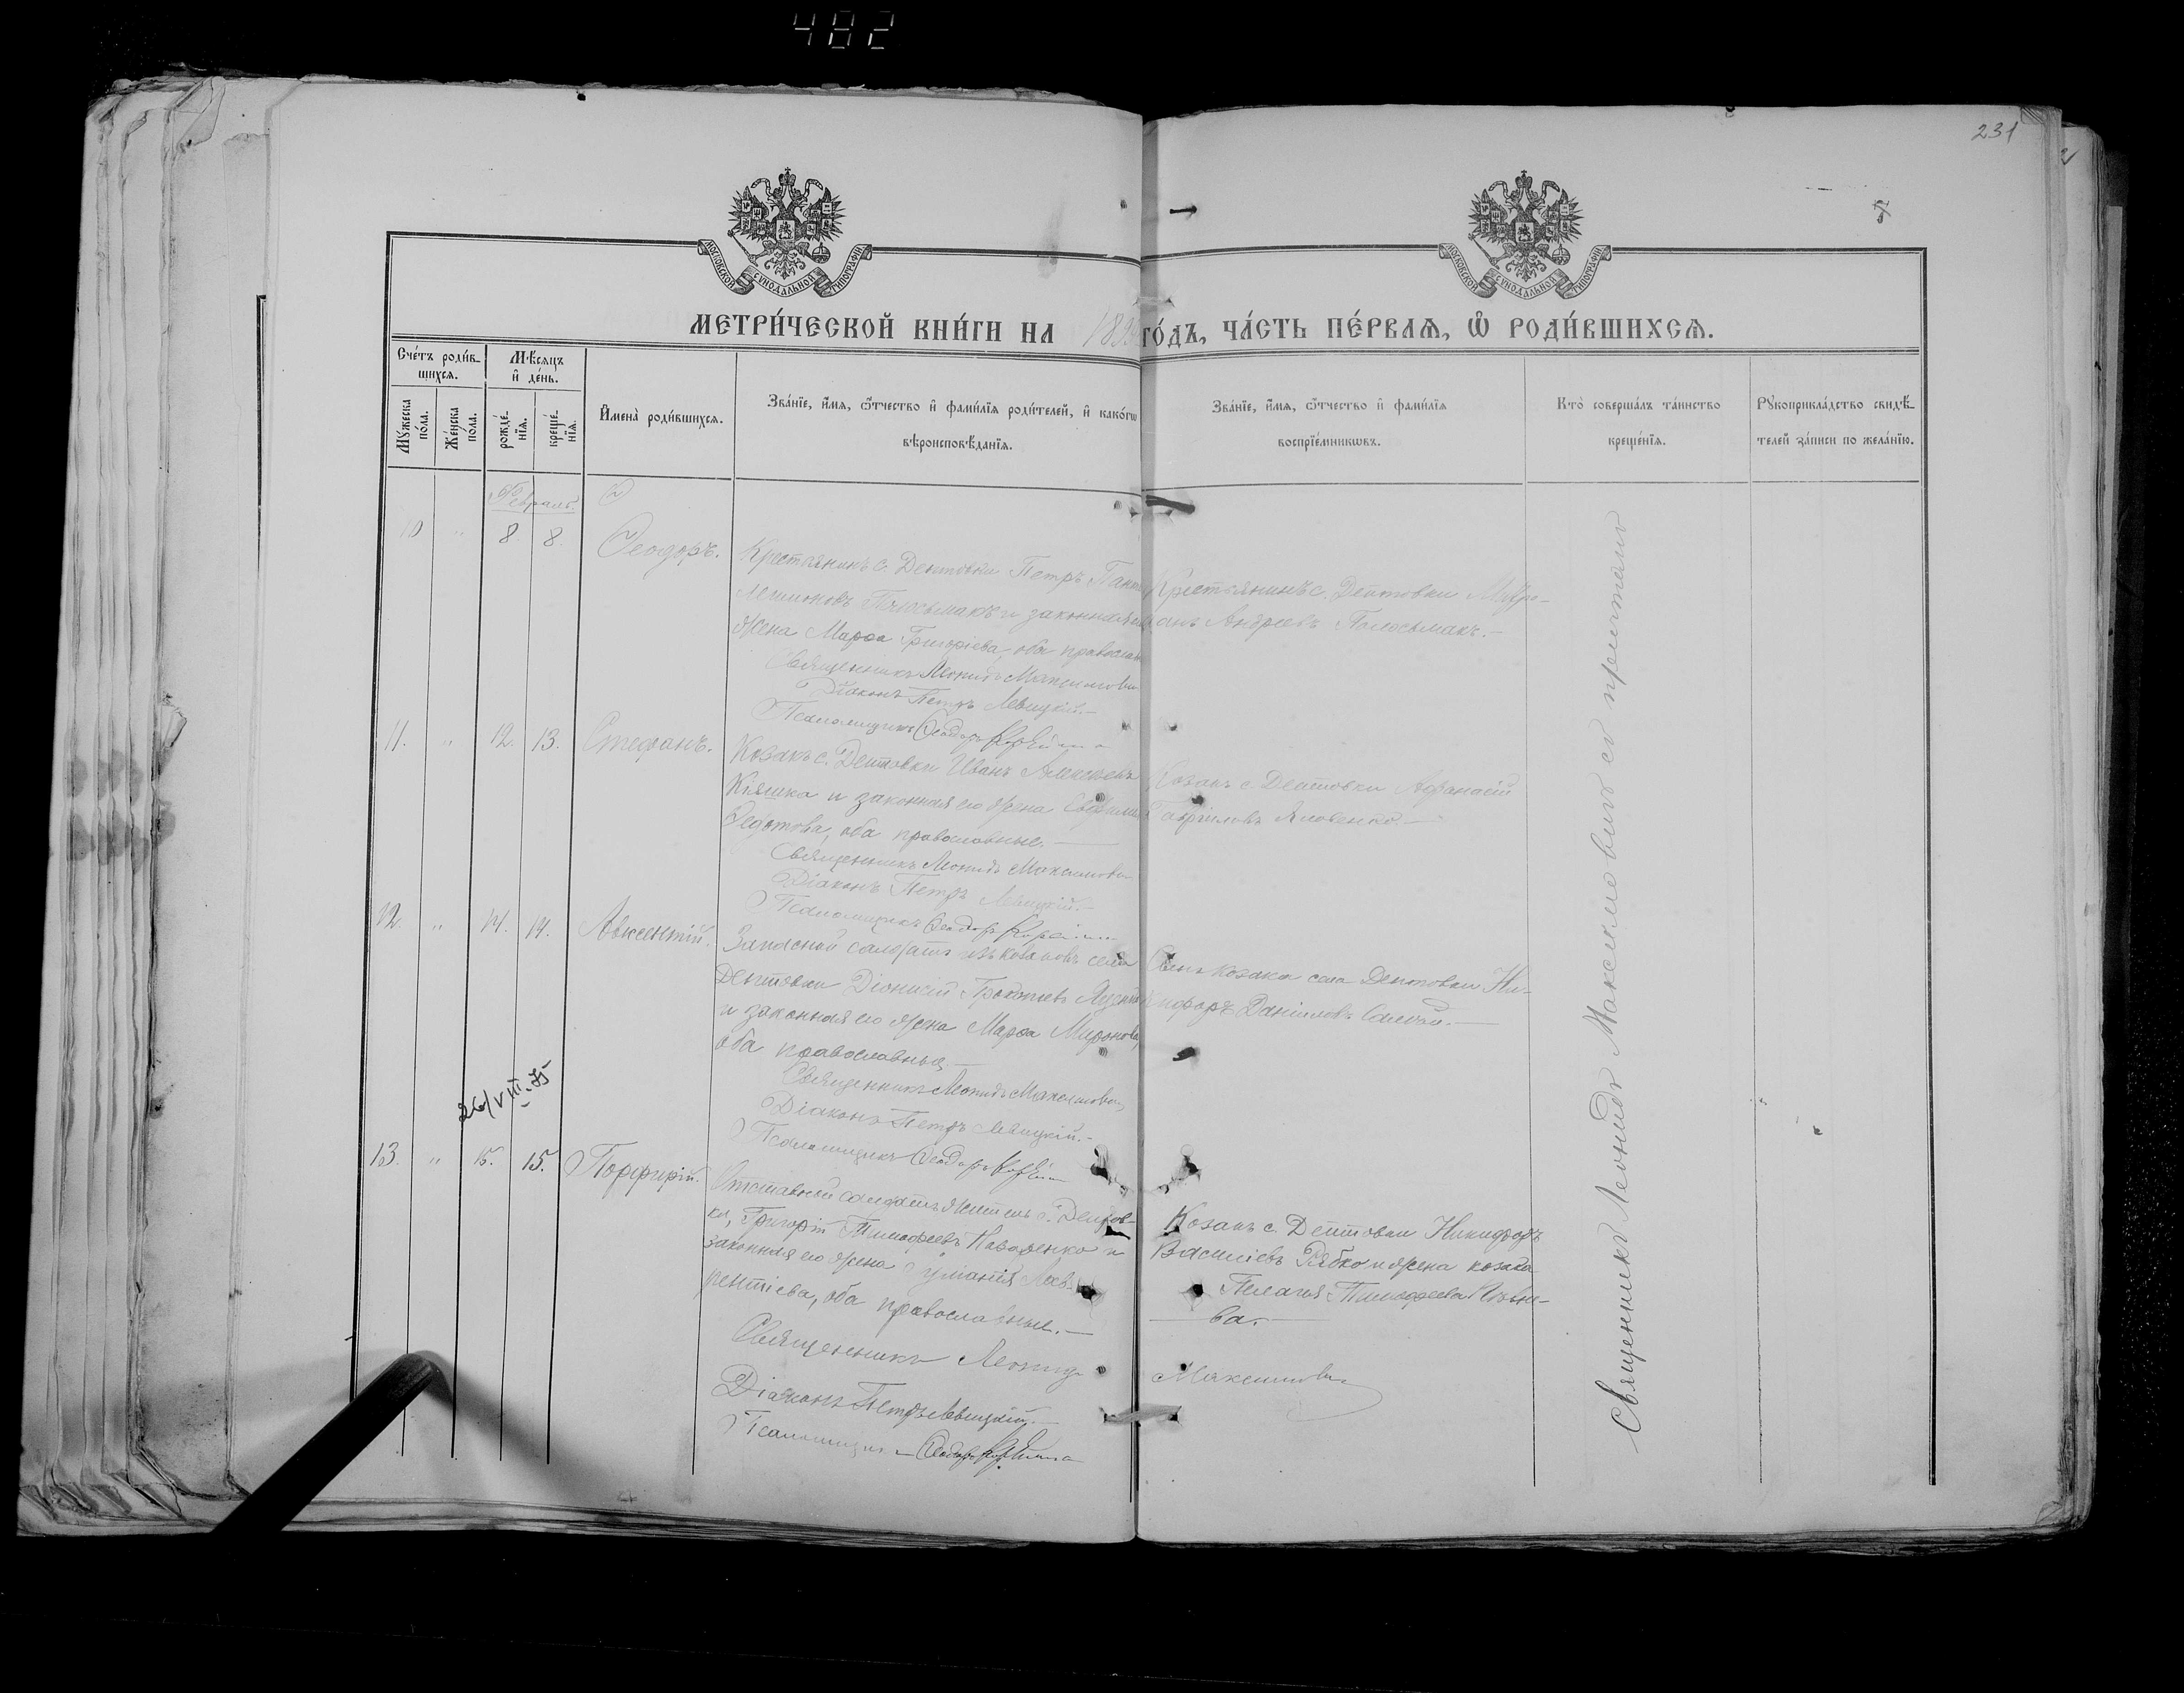 482
231
МОСКОВСКОЙ СѴНОДАЛЬНОЙ ТИПОГРАФІИ
МОСКОВСКОЙ СѴНОДАЛЬНОЙ ТИПОГРАФІИ
МЕТРИ́ЧЕСКОЙ КНИ́ГИ НА 189 ГО́ДЪ, ЧА́СТЬ ПЕ́РВАѦ, Ѽ РОДИ́ВШИХСѦ.
Сче́тъ роди́в-
шихсѧ.
Мꙋ́жеска по́ла.
Же́нска по́ла.
Мѣ́сяцъ
и҆ де́нь.
рожде́-
нїѧ.
креще́-
нїѧ.
И҆мена̀ роди́вшихсѧ.
Зва́нїе, и҆́мѧ, ѻ҆́тчество и҆ фами́лїѧ роди́телей, и҆ како́гѡ
вѣроисповѣ́данїѧ.
Зва́нїе, и҆́мѧ, ѻ҆́тчество и҆ фами́лїѧ
воспрїе́мникѡвъ.
Кто̀ соверша́лъ та́инство
креще́нїѧ.
Рꙋкоприкла́дство свидѣ́-
телей за́писи по жела́нїю.
Февраль.
10 " 8. 8. Ѳеодоръ.
Крестьянинъ с. Дептовки Петръ
Полосьмакъ и законная
жена Марѳа Григоріева, оба православ
Священникъ Леонидъ Максимович
Діаконъ Петръ Левицкій.–
Псаломщикъ Ѳеодоръ
Крестьянинъ с. Дептовки
Андреевъ Полосьмакъ.–
11. " 12. 13. Стефанъ.
Козакъ с. Дептовки Иванъ Алексѣевъ
Кіяшка и законная его жена
Ѳедотова, оба православные.–
Священникъ Леонидъ Максимович
Діаконъ Петръ Левицкій.–
Псаломщикъ Ѳеодоръ
Козакъ с. Дептовки Аѳанасій
Гавріиловъ Яковенко.–
12. " 14. 14. Авксентій.
Запасной солдатъ изъ козаковъ села
Дептовки Діонисій Прокопіевъ
и законная его жена Марѳа Миронова,
оба православные.–
Священникъ Леонидъ Максимович
Діаконъ Петръ Левицкій.–
Псаломщикъ Ѳеодоръ
Сынъ козака села Дептовки Ни-
кифоръ Даніиловъ
26/VIII.75
13. " 15. 15. Порфирій.
Отставной солдатъ житель с. Дептов-
ки, Григорій Тимоѳеевъ Назаренко и
законная его жена Іуліанія Лав-
рентіева, оба православные.–
Священникъ Леонид
Максимович
Діаконъ Петръ Левицкій.–
Псаломщикъ Ѳеодоръ
Козакъ с. Дептовки Никифоръ
Василіевъ Рябко и жена козака
Пелагія Тимоѳеева
ва.–
Священникъ Леонидъ Максимовичъ съ причтомъ